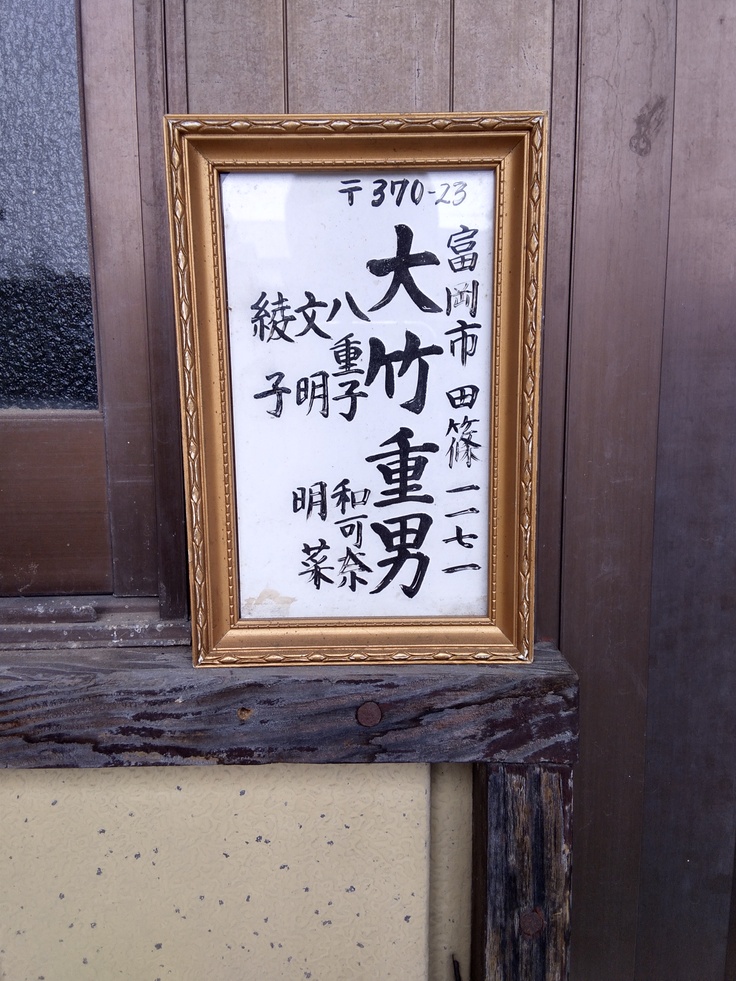 〒370-23
富岡市田篠一一七一
大竹重男
八重子
文明
綾子
和可奈
明菜